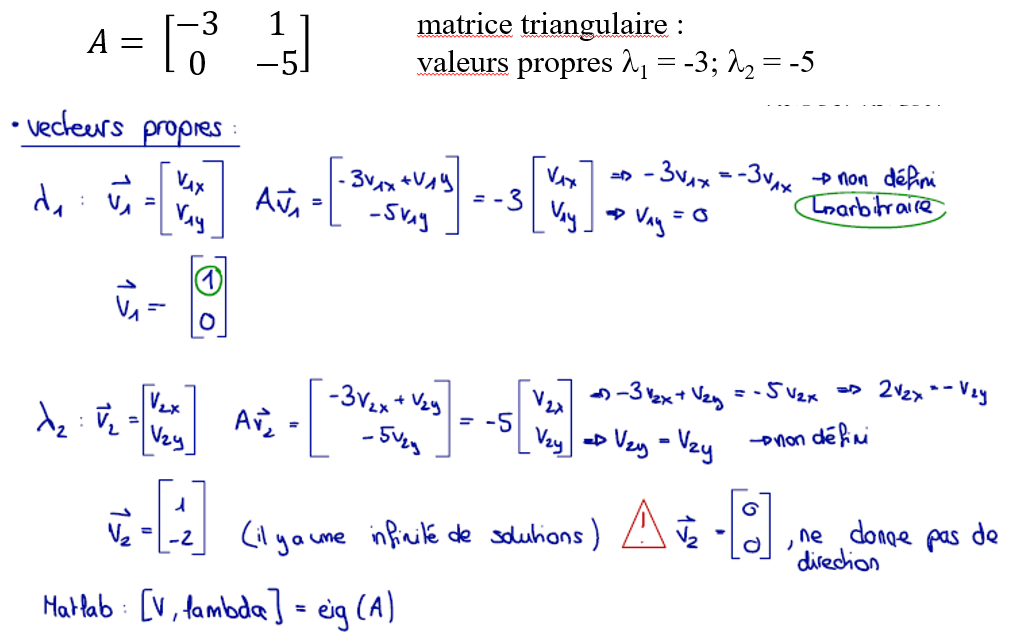 A = [-3 1; 0 -5] matrice triangulaire :
valeurs propres λ₁ = -3; λ₂ = -5
• vecteurs propres :
λ₁ : v⃗₁ = [V₁ₓ; V₁y] Av⃗₁ = [-3V₁ₓ + V₁y; -5V₁y] = -3 [V₁ₓ; V₁y] ⇒ -3V₁ₓ = -3V₁ₓ → non défini
⇒ V₁y = 0 ↳ arbitraire
v⃗₁ = [1; 0]
λ₂ : v⃗₂ = [V₂ₓ; V₂y] Av⃗₂ = [-3V₂ₓ + V₂y; -5V₂y] = -5 [V₂ₓ; V₂y] ⇒ -3V₂ₓ + V₂y = -5V₂ₓ ⇒ 2V₂ₓ = -V₂y
⇒ V₂y = V₂y → non défini
v⃗₂ = [1; -2] (il y a une infinité de solutions) ! v⃗₂ = [0; 0], ne donne pas de
direction
Matlab : [V, lambda] = eig (A)